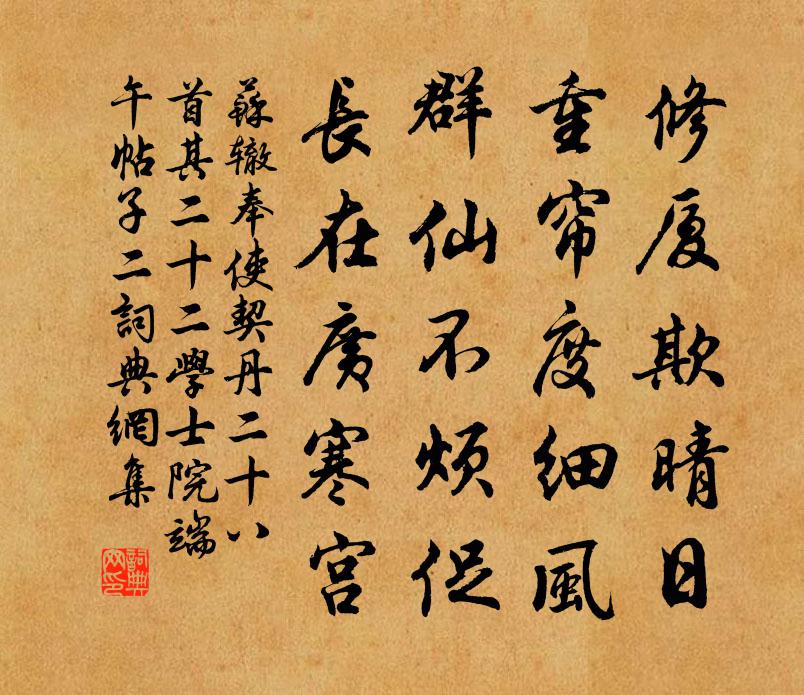 修厦欺晴日
重帘度细風
群仙不烦促
長在廣寒宫
蘇辙奉使契丹二十八
首其二十二學士院端
午帖子二詞典網集